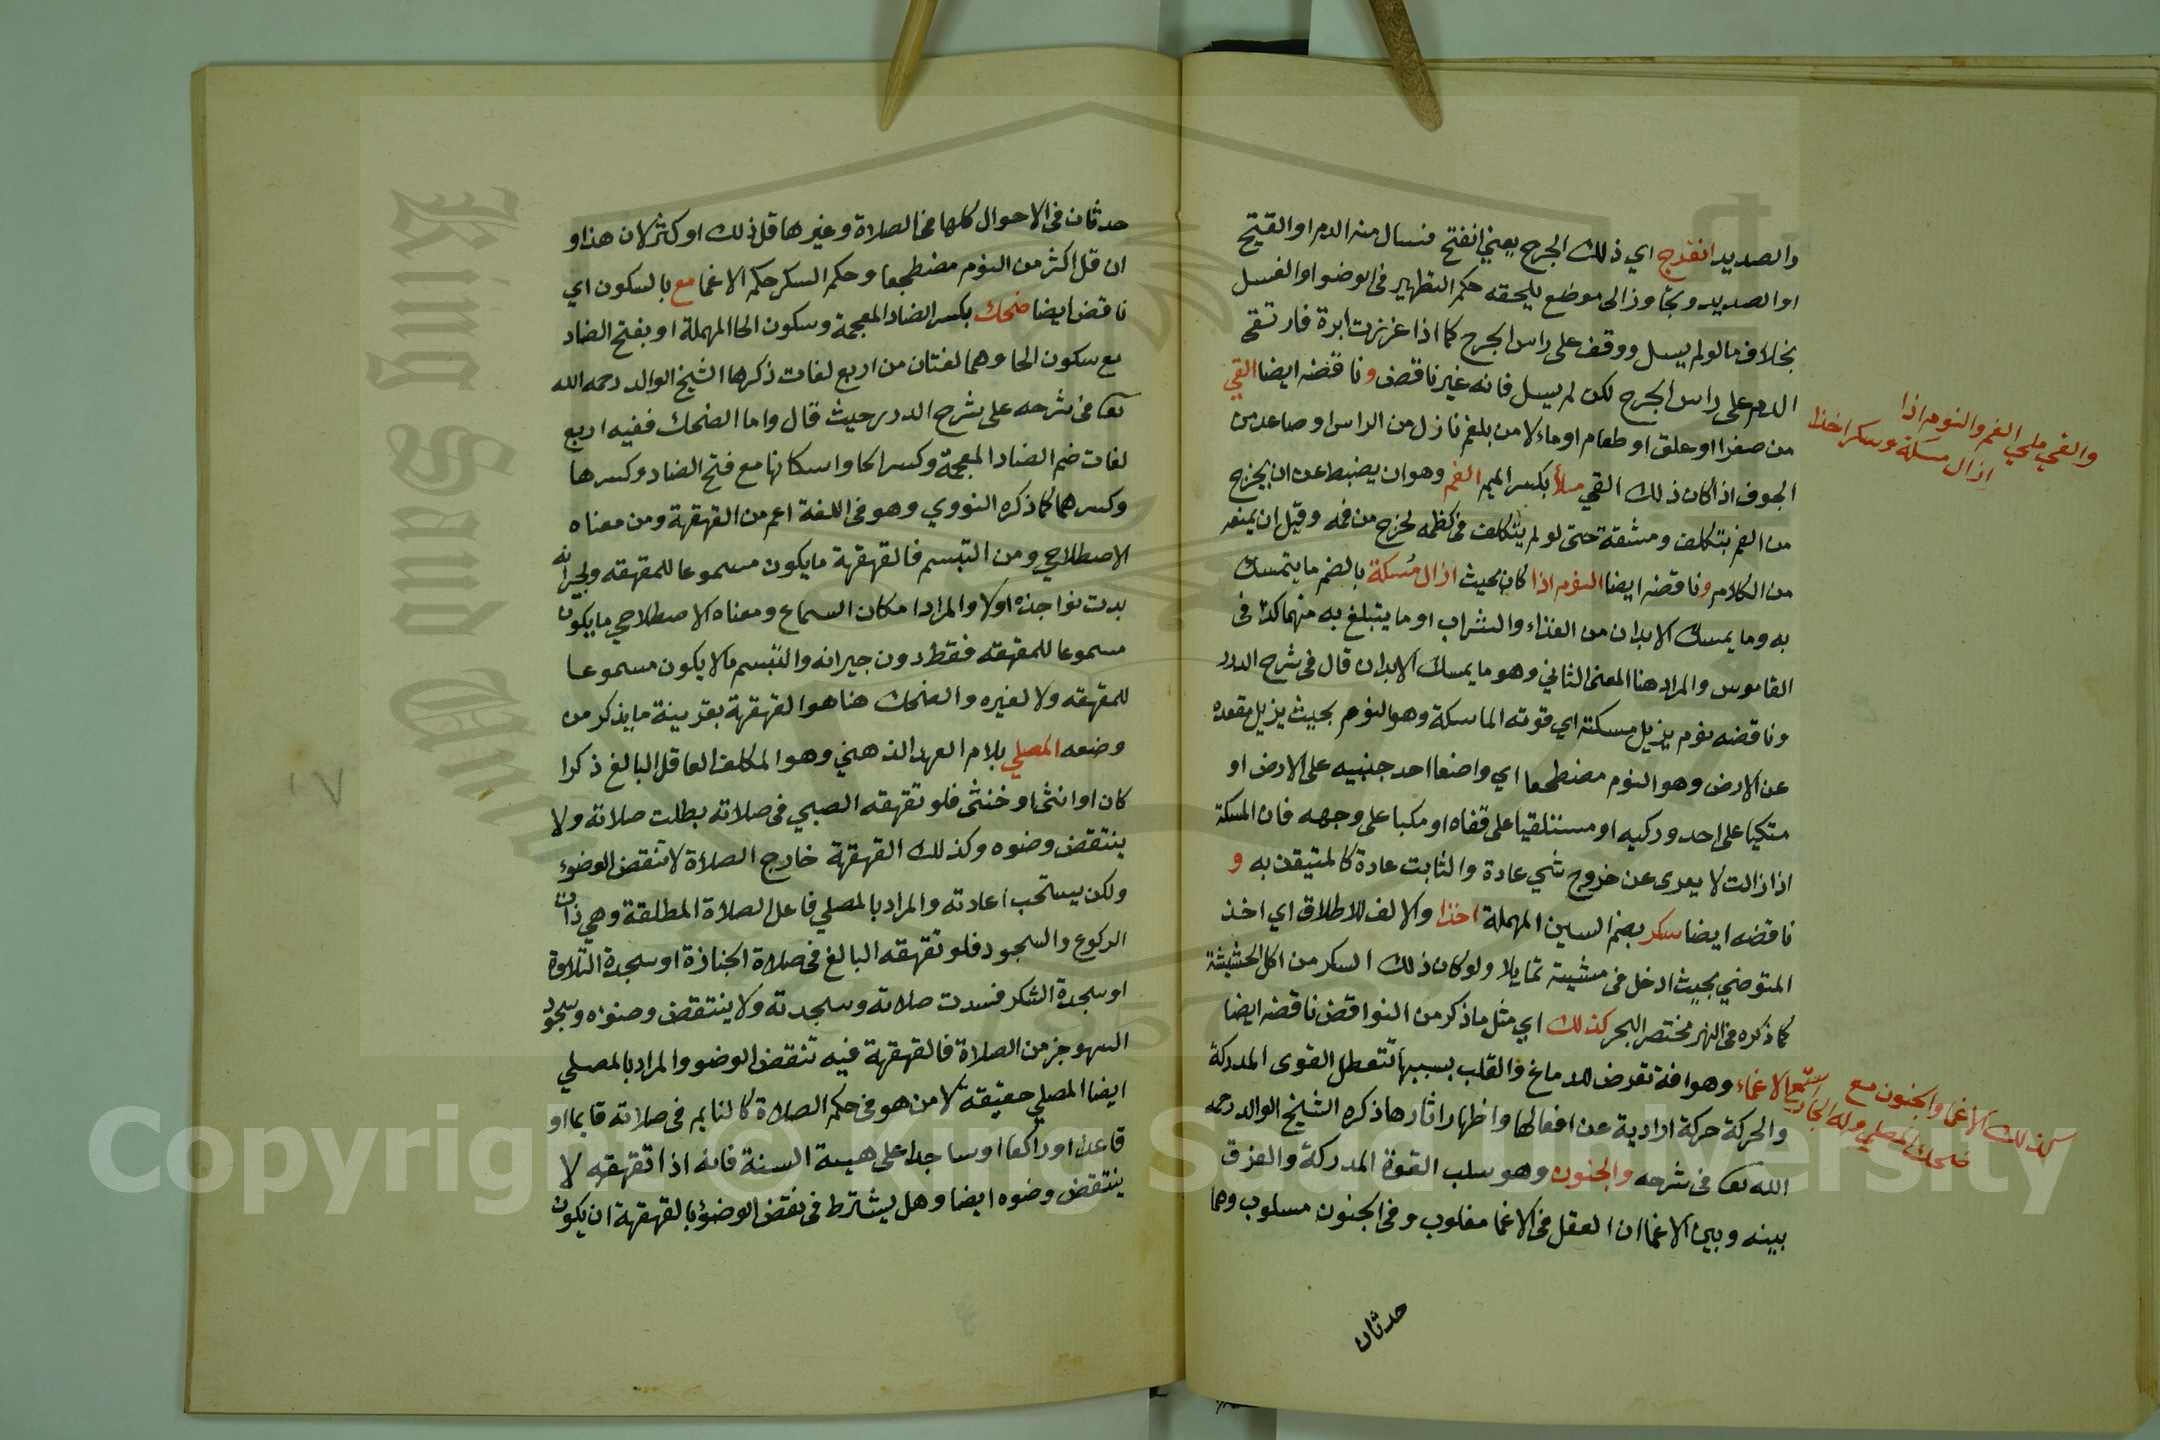 والصديد انفرج اي ذلك الجرح يعني انفتح فسال منه الدم او القيح
او الصديد وتجاوز الى موضع يلحقه حكم التطهير في الوضوا والغسل
بخلاف ما لو لم يسل ووقف على راس الجرح كما اذا غرزت ابرة فارتقى
الدم على راس الجرح لكن لم يسل فانه غير ناقض وناقضه ايضا القي
من صفرا او علق او طعام او ماء لا من بلغم نازل من الراس او صاعد من
الجوف اذا كان ذلك القي ملأ بكسر الميم الفم وهو ان يضبط عن ان يخرج
من الفم بتكلف ومشقة حتى لو لم يتكلف في كظمه لخرج من فمه وقيل ان يمنعه
من الكلام وناقضه ايضا النوم اذا كان بحيث ازال مُسكة بالضم ما يتمسك
به وما يمسك الابدان من الغذاء والشراب او ما يتبلغ به منهما كذا في
القاموس والمراد هنا المعنى الثاني وهو ما يمسك الابدان قال في شرح الدرر
وناقضه نوم يزيل مسكته اي قوته الماسكة وهو النوم بحيث يزيل مقعده
عن الارض وهو النوم مضطجعا اي واضعا احد جنبيه على الارض او
متكيا على احد وركيه او مستلقيا على قفاه او مكبا على وجهه فان المسكة
اذا زالت لا يعرى عن خروج شي عادة والثابت عادة كالمتيقن به و
ناقضه ايضا سكر بضم السين المهملة اخذا والالف للاطلاق اي اخذ
المتوضي بحيث ادخل في مشيته تمايلا ولو كان ذلك السكر من اكل الحشيشة
كما ذكره في النهر مختصر البحر كذلك اي مثل ما ذكر من النواقض ناقضه ايضا
الاغماء وهو افة تعرض للدماغ والقلب بسببها تتعطل القوى المدركة
والحركة حركة ارادية عن افعالها واظهار اثارها ذكره الشيخ الوالد رحمه
الله تعا في شرحه والجنون وهو سلب القوة المدركة والفرق
بينه وبين الاغما ان العقل في الاغما مغلوب وفي الجنون مسلوب وهما
حدثان
والقي ملي الفم والنوم اذا
ازال مسكة وسكر اخذا
كذلك الاغما والجنون مع
ضحك المصلي
حدثان في الاحوال كلها في الصلاة وغيرها قل ذلك او كثر لان هذا و
ان قل اكثر من النوم مضطجعا وحكم السكر حكم الاغما مع بالسكون اي
ناقض ايضا ضحك بكسر الضاد المعجمة وسكون الحا المهملة او بفتح الضاد
مع سكون الحا وهما لغتان من اربع لغات ذكرها الشيخ الوالد رحمه الله
تعا في شرحه على شرح الدرر حيث قال واما الضحك ففيه اربع
لغات ضم الضاد المعجمة وكسر الحا واسكانها مع فتح الضاد وكسرها
وكسرهما كما ذكره النووي وهو في اللغة اعم من القهقهة ومن معناه
الاصطلاحي ومن التبسم فالقهقهة ما يكون مسموعا للمقهقه ولجيرانه
بدت نواجذه اولا والمراد امكان السماع ومعناه الاصطلاحي ما يكون
مسموعا للمقهقه فقط دون جيرانه والتبسم ما لا يكون مسموعا
للمقهقه ولا لغيره والضحك هنا هو القهقهة بقرينة ما يذكر من
وضعه المصلي بلام العهد الذهني وهو المكلف العاقل البالغ ذكرا
كان او انثى او خنثى فلو تقهقه الصبي في صلاته بطلت صلاته ولا
ينتقض وضوه وكذلك القهقهة خارج الصلاة لا تنقض الوضوء
ولكن يستحب اعادته والمراد بالمصلي فاعل الصلاة المطلقة وهي ذات
الركوع والسجود فلو تقهقه البالغ في صلاة الجنازة او سجدة التلاوة
او سجدة الشكر فسدت صلاته وسجدته ولا ينتقض وضوءه وسجود
السهو جز من الصلاة فالقهقهة فيه تنقض الوضو والمراد بالمصلي
ايضا المصلي حقيقة لا من هو في حكم الصلاة كالنايم في صلاته قايما او
قاعدا او راكعا او ساجدا على هيىة السنة فانه اذا تقهقه لا
ينتقض وضوه ايضا وهل يشترط في نقض الوضؤ بالقهقهة ان يكون
١٧
King Saud University
Copyright © King Saud University